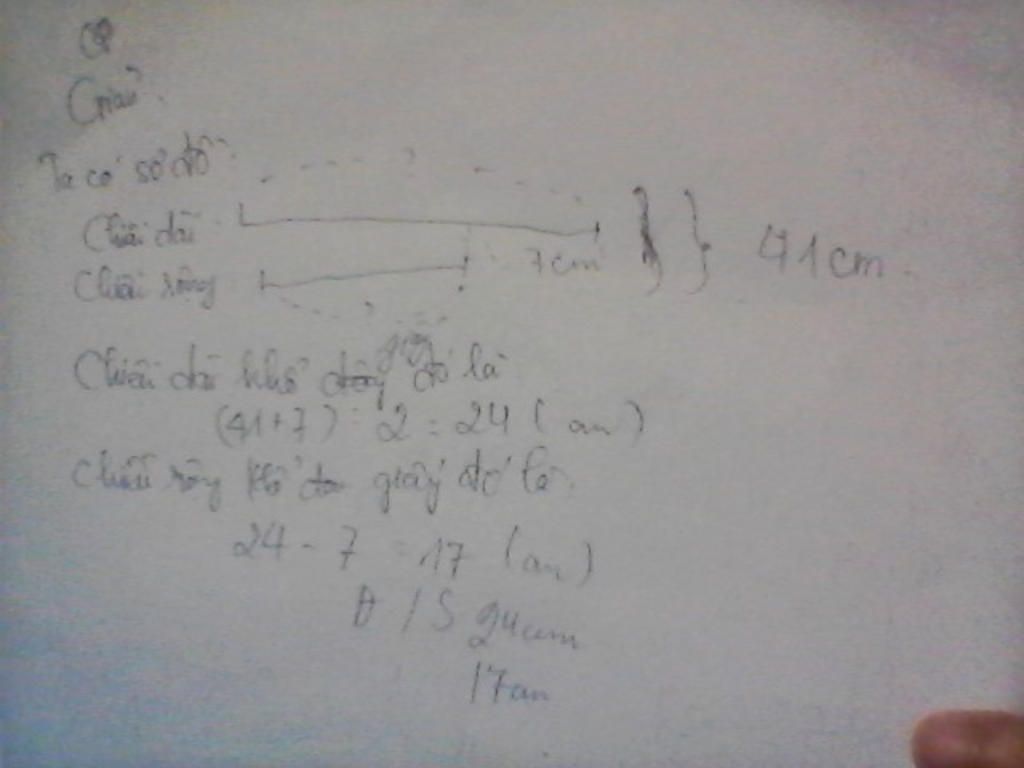 Giải
Ta có sơ đồ
?
Chiều dài
7cm
41cm
Chiều rộng
?
giấy
Chiều dài khổ đó là
(41+7) : 2 = 24 (cm)
Chiều rộng khổ giấy đó là
24 - 7 = 17 (cm)
Đ/S 24cm
17cm